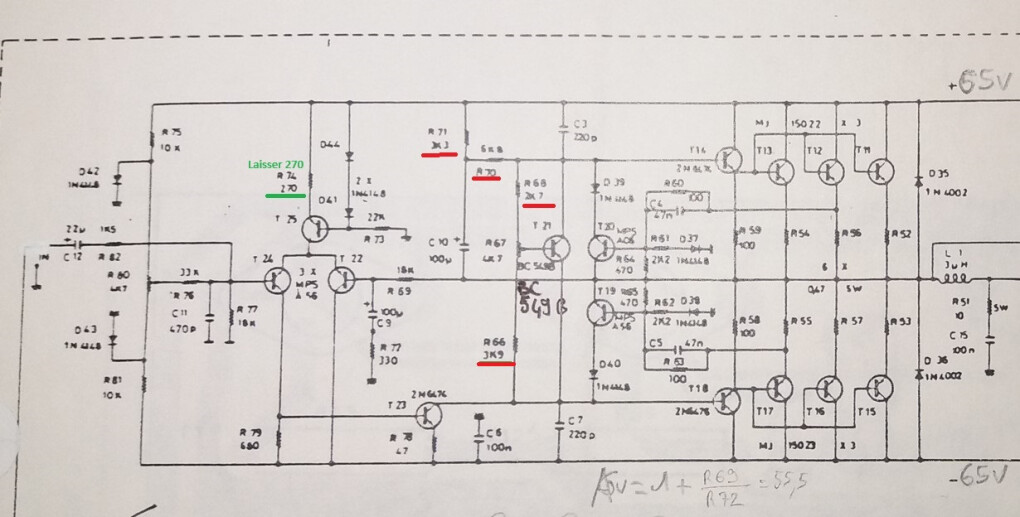 +65V
R 75
10 K
D44
R 71
3K3
C 3
220 p
MJ 15022 X 3
Laisser 270
R 74
270
6K8
R 70
T14
2N6474
T13
T12
T11
D42
1N4148
2 X
1N4148
R 68
2K7
D 39
1N4148
R60
100
C4
47n
D 35
1 N 4002
D41
T 25
22K
R 73
T 21
BC 549B
BC
549 B
T20
MPS
A06
22µ
C 12
1K5
R 82
IN
C 10
100µ
R 67
4K7
R 64
470
R61
2K2
D37
1N4148
R 59
100
R54
R 56
R 52
T 24
T 22
3 X
MPS
A 56
R 80
4K7
33 K
R 76
18K
R 69
6 X
0,47 5W
L 1
3 µ H
C 11
470 p
R 77
18K
100µ
C 9
R 77
330
T19
MPS
A56
R65
470
R 62
2K2
D38
1N4148
R 58
100
R 55
R 57
R 53
R 51
10
5W
C 15
100 n
D43
1N 4148
R 66
3K9
C5
47n
R 63
100
D 36
1N4002
R 81
10 K
D40
1N4148
2N6474
T 23
T18
2N6476
T17
T16
T15
R 79
680
R 78
47
C 6
100n
C 7
220 p
MJ 15023 X 3
-65V
Av = 1 + R69/R72 = 55,5